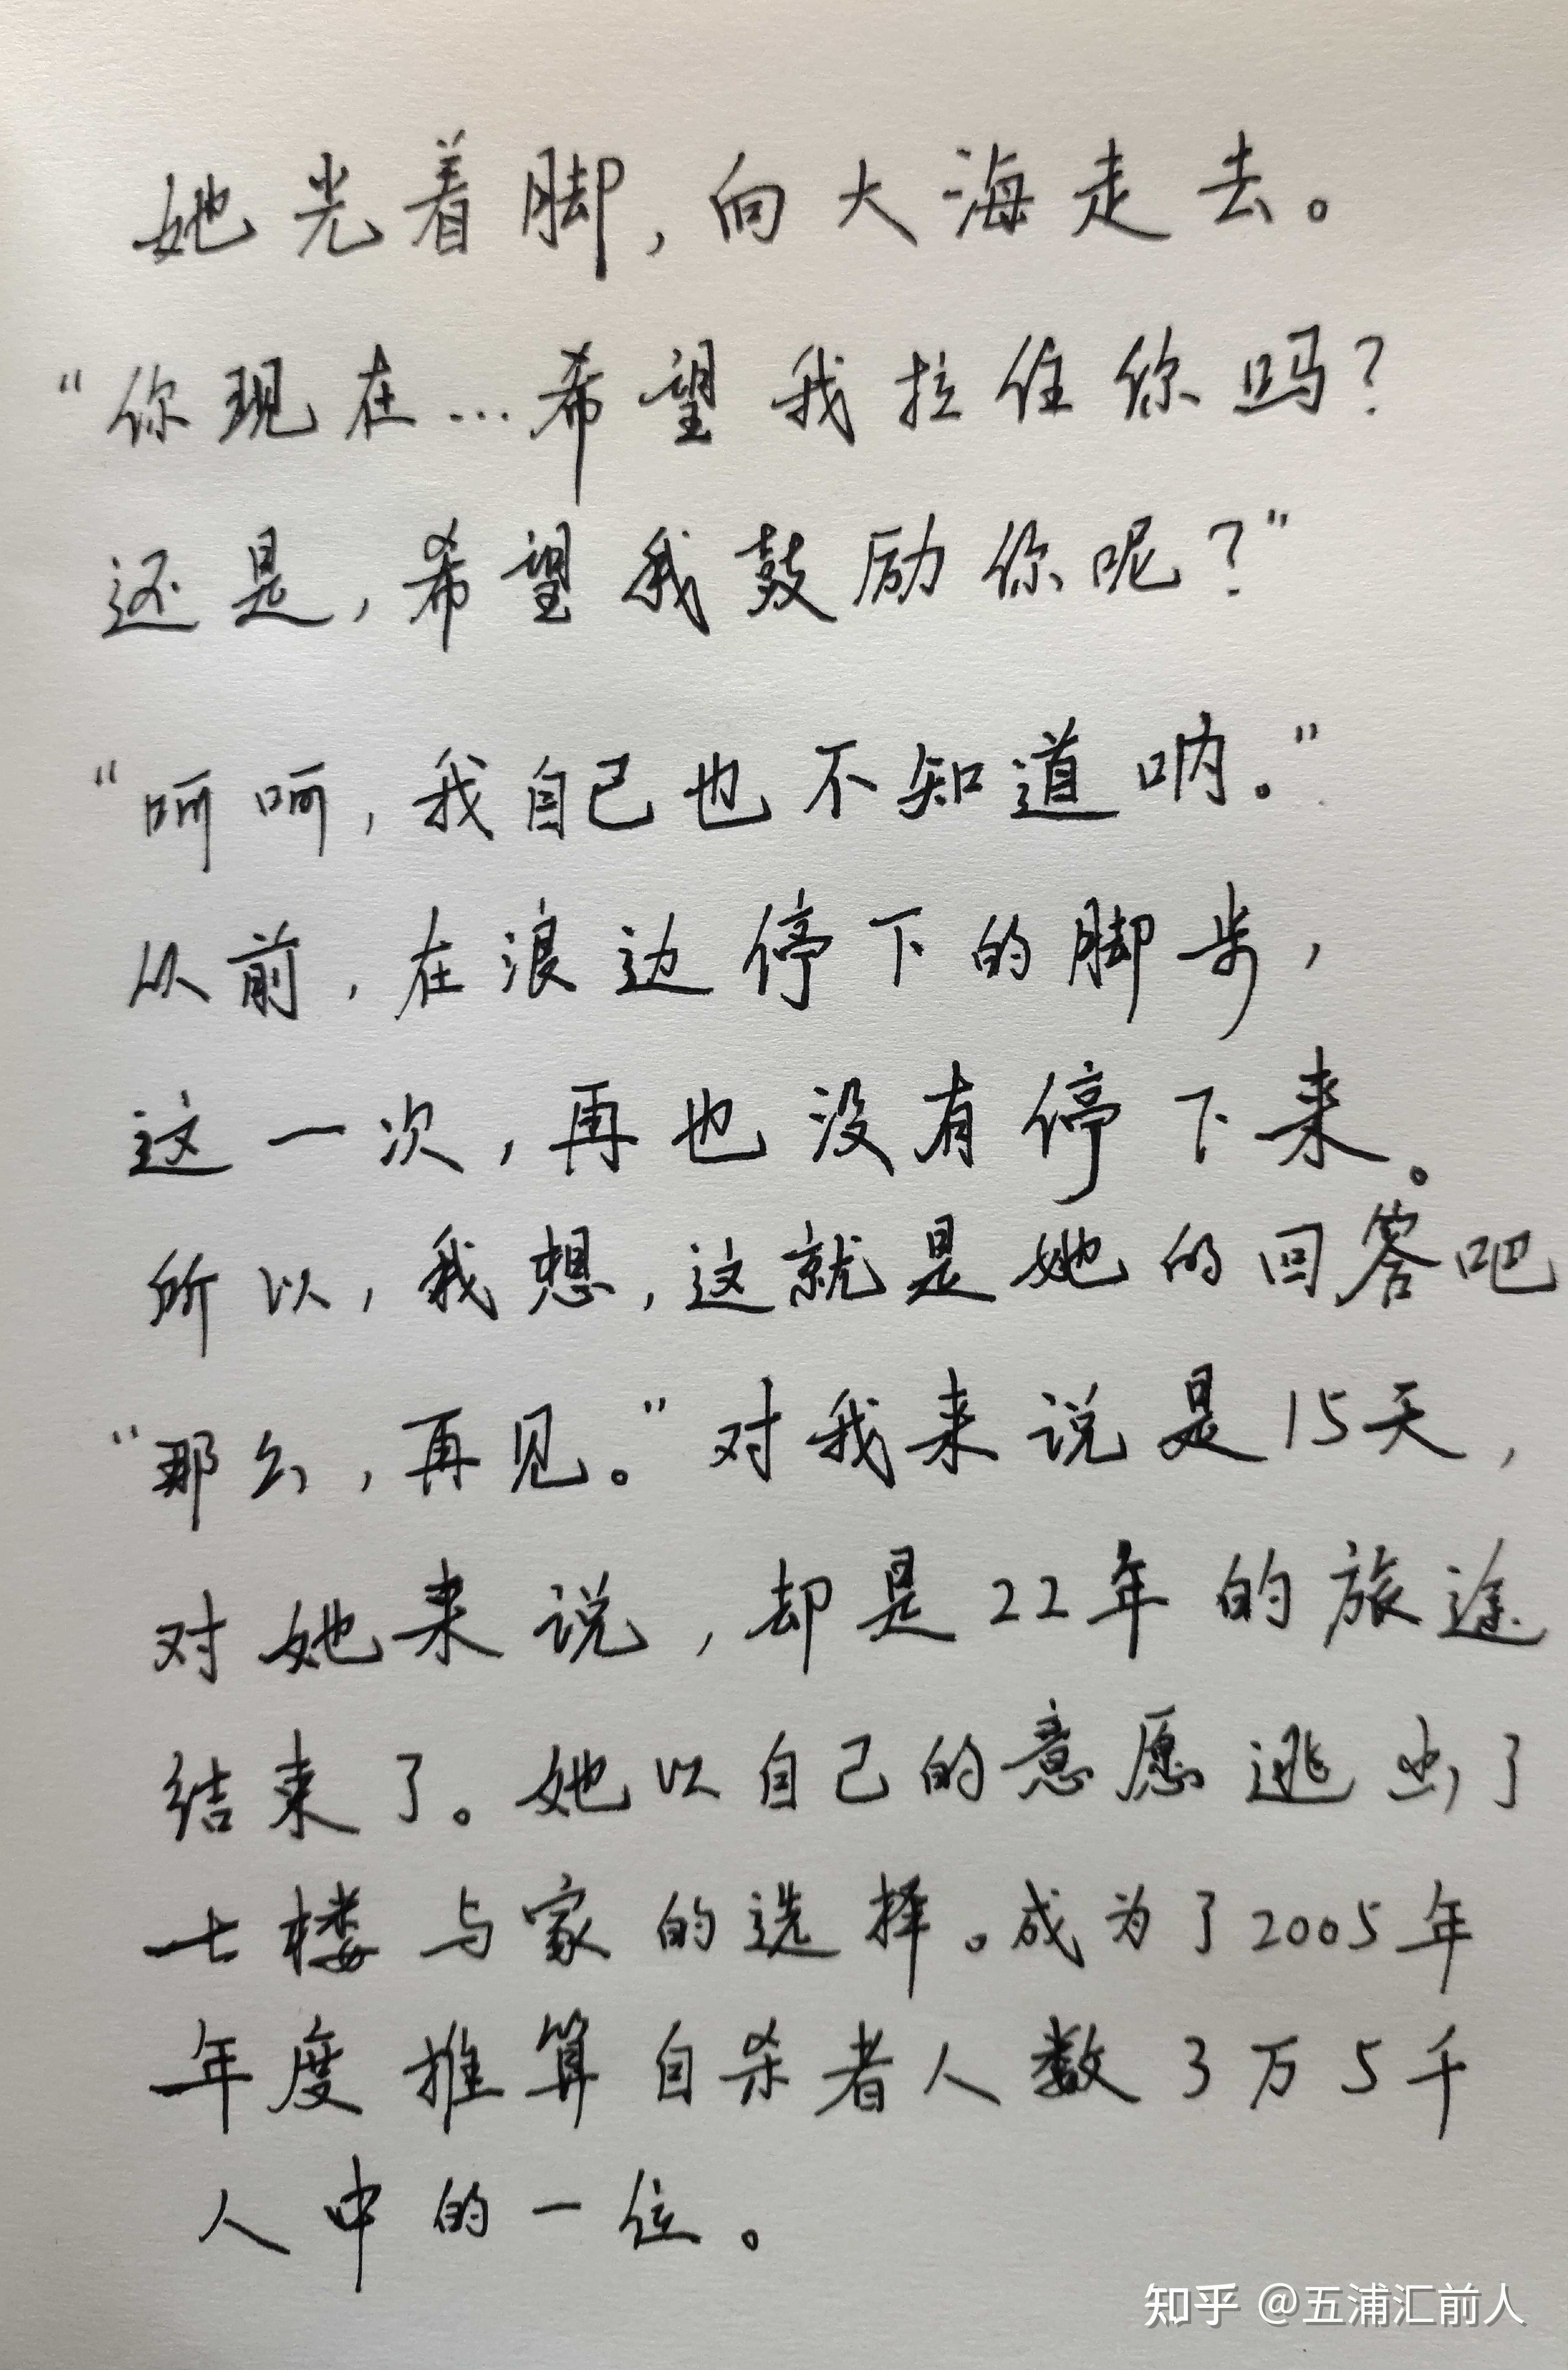 她光着脚，向大海走去。
“你现在…希望我拉住你吗？
还是，希望我鼓励你呢？”
“呵呵，我自己也不知道呐。”
从前，在浪边停下的脚步，
这一次，再也没有停下来。
所以，我想，这就是她的回答吧
“那么，再见。”对我来说是15天，
对她来说，却是22年的旅途
结束了。她以自己的意愿逃出了
七楼与家的选择。成为了2005年
年度推算自杀者人数3万5千
人中的一位。
知乎 @五浦汇前人